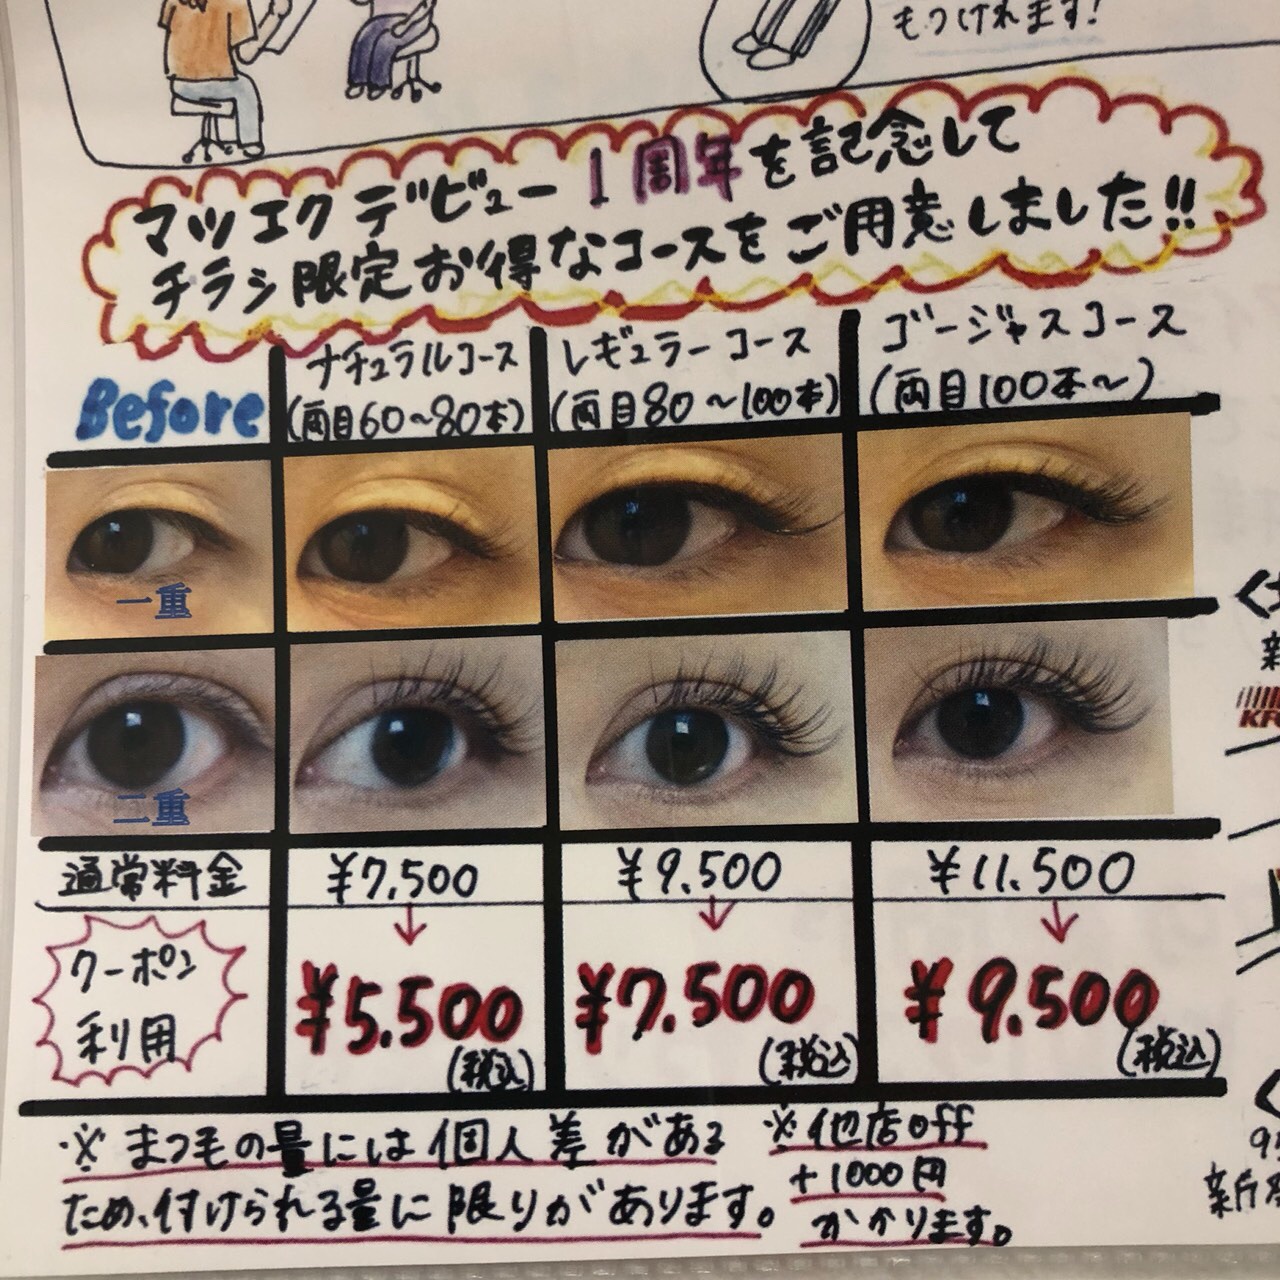 もつけれます!
マツエクデビュー1周年を記念して
チラシ限定お得なコースをご用意しました!!
Before
ナチュラルコース
(両目60~80本)
レギュラーコース
(両目80~100本)
ゴージャスコース
(両目100本~)
一重
二重
通常料金
¥7,500
¥9,500
¥11,500
クーポン
利用
¥5,500
(税込)
¥7,500
(税込)
¥9,500
(税込)
※まつ毛の量には個人差がある
ため、付けられる量に限りがあります。
※他店off
+1000円
かかります。
KFC